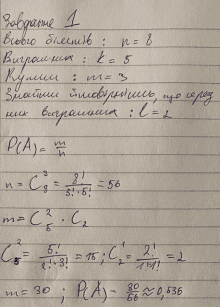 Завдання 1
Всього білетів : n = 8
Виграшних : k = 5
Купили : m = 3
Знайти ймовірність, що серед
них виграшних : l = 2
P(A) = m/n
n = C₈³ = 8!/(3!·5!) = 56
m = C₅² · C₂
C₅² = 5!/(2!·3!) = 15 ; C₂¹ = 2!/(1!·1!) = 2
m = 30 ; P(A) = 30/56 ≈ 0,536